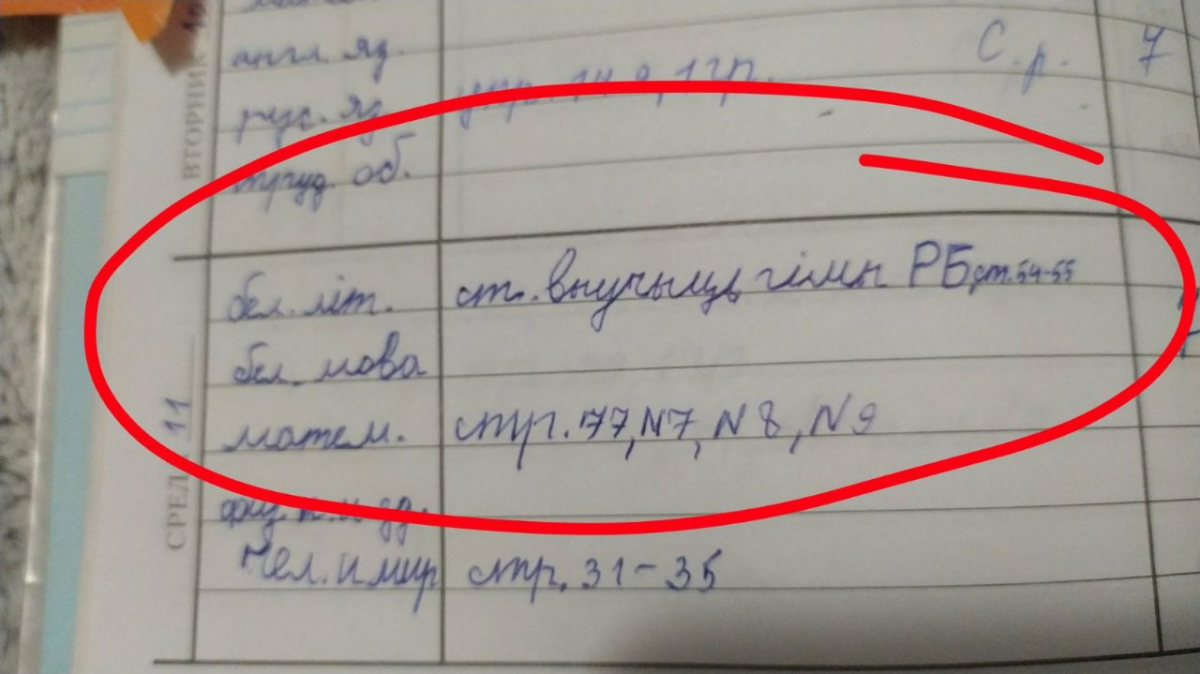 ВТОРНИК
англ. яз.
С. р. 7
рус. яз. упр. 1 гр.
труд. об.
СРЕДА 11
бел. літ. ст. вывучыць гімн РБ, ст. 54-55
бел. мова
матем. стр. 77, N7, N8, N9
физ. к. и зд.
Чел. и мир стр. 31-35